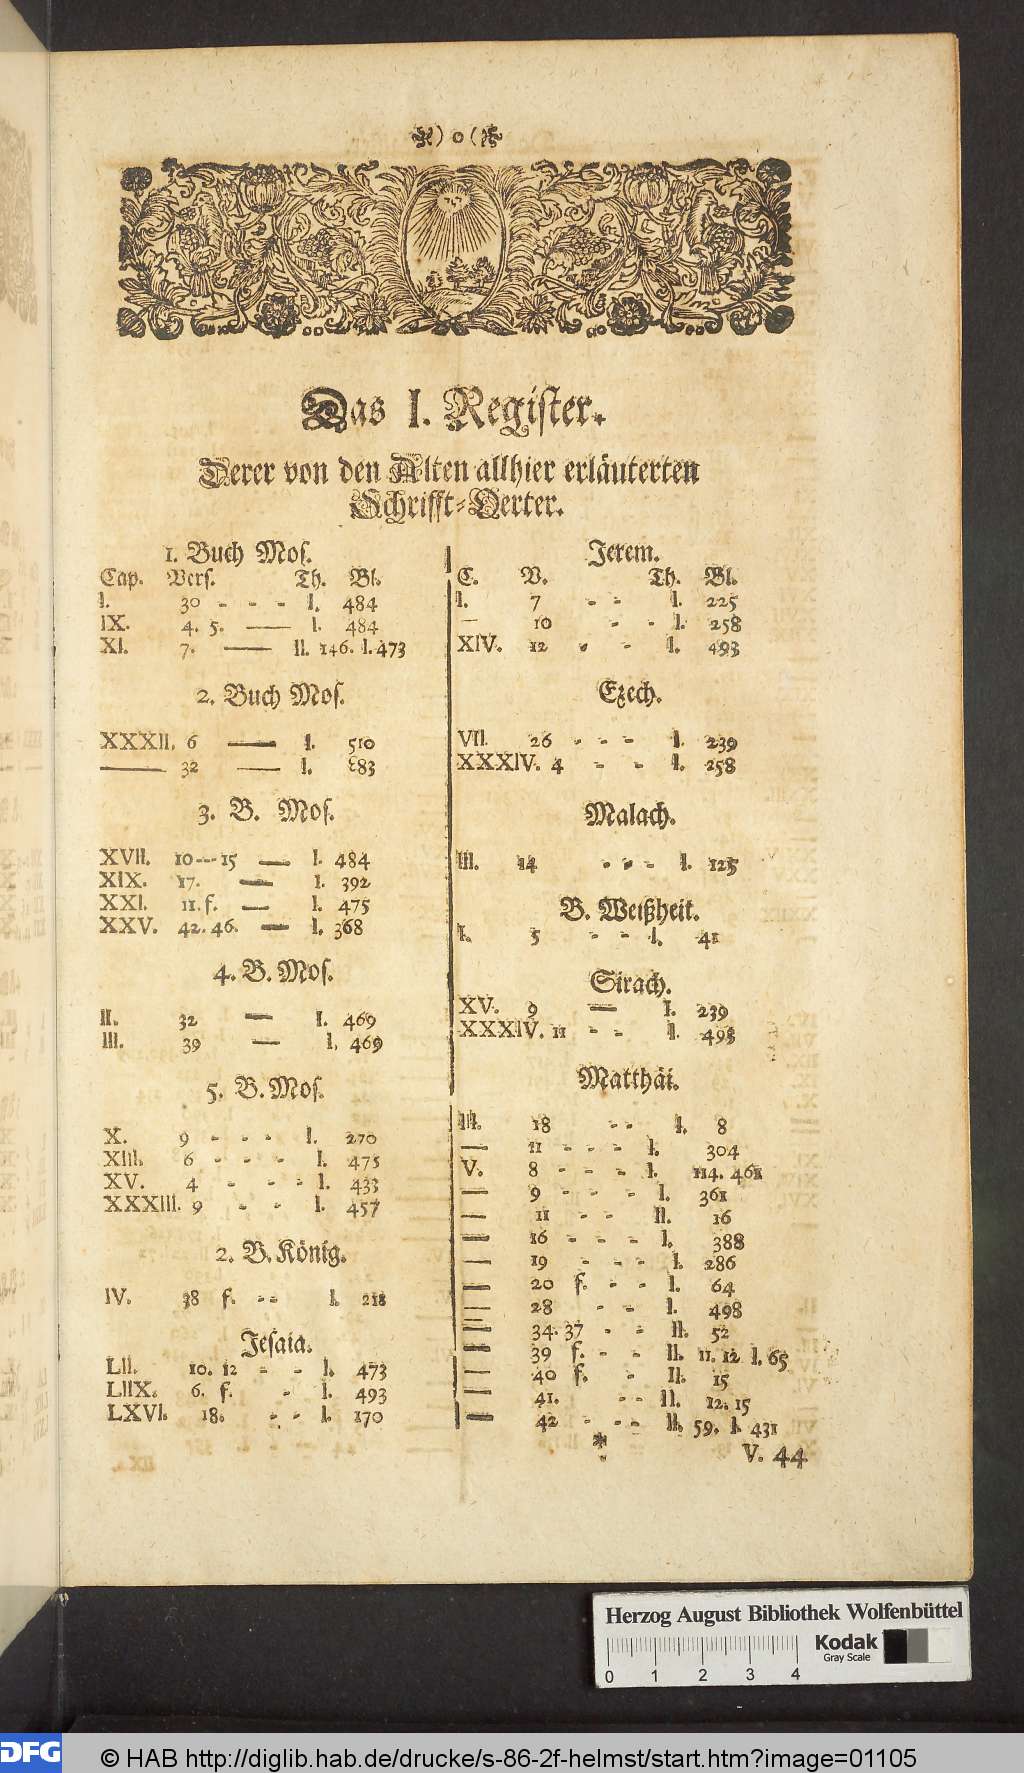 ) o (
Das I. Register.
Derer von den Alten allhier erläuterten
Schrifft-Oerter.
1. Buch Mos.
Cap. Vers. Th. Bl.
I. 30 - - - I. 484
IX. 4. 5. — I. 484
XI. 7. — II. 146. I. 473
2. Buch Mos.
XXXII. 6 — I. 510
— 32 — I. 83
3. B. Mos.
XVII. 10---15 — I. 484
XIX. 17. — I. 392
XXI. 11. f. — I. 475
XXV. 42. 46. — I. 368
4. B. Mos.
II. 32 — I. 469
III. 39 — I. 469
5. B. Mos.
X. 9 - - - I. 270
XIII. 6 - - - I. 475
XV. 4 - - - I. 433
XXXIII. 9 - - I. 457
2. B. König.
IV. 38 f. - - I. 218
Jesaia.
LII. 10. 12 - - I. 473
LIIX. 6. f. - I. 493
LXVI. 18. - - I. 170
Jerem.
C. V. Th. Bl.
I. 7 - - I. 225
— 10 - - I. 258
XIV. 12 - - I. 493
Ezech.
VII. 26 - - - I. 239
XXXIV. 4 - - I. 258
Malach.
III. 14 - - - I. 125
B. Weißheit.
I. 5 - - I. 41
Sirach.
XV. 9 — I. 239
XXXIV. 11 - - I. 493
Matthäi.
III. 18 - - I. 8
— 11 - - - I. 304
V. 8 - - - I. 114. 461
— 9 - - - I. 361
— 11 - - II. 16
— 16 - - - I. 388
— 19 - - - I. 286
— 20 f. - - I. 64
— 28 - - I. 498
— 34. 37 - - II. 52
— 39 f. - - II. 11. 12 I. 65
— 40 f. - II. 15
— 41. - - II. 12. 15
— 42 - - - II. 59. I. 431
*
V. 44
Herzog August Bibliothek Wolfenbüttel
Kodak
Gray Scale
0 1 2 3 4
DFG © HAB http://diglib.hab.de/drucke/s-86-2f-helmst/start.htm?image=01105